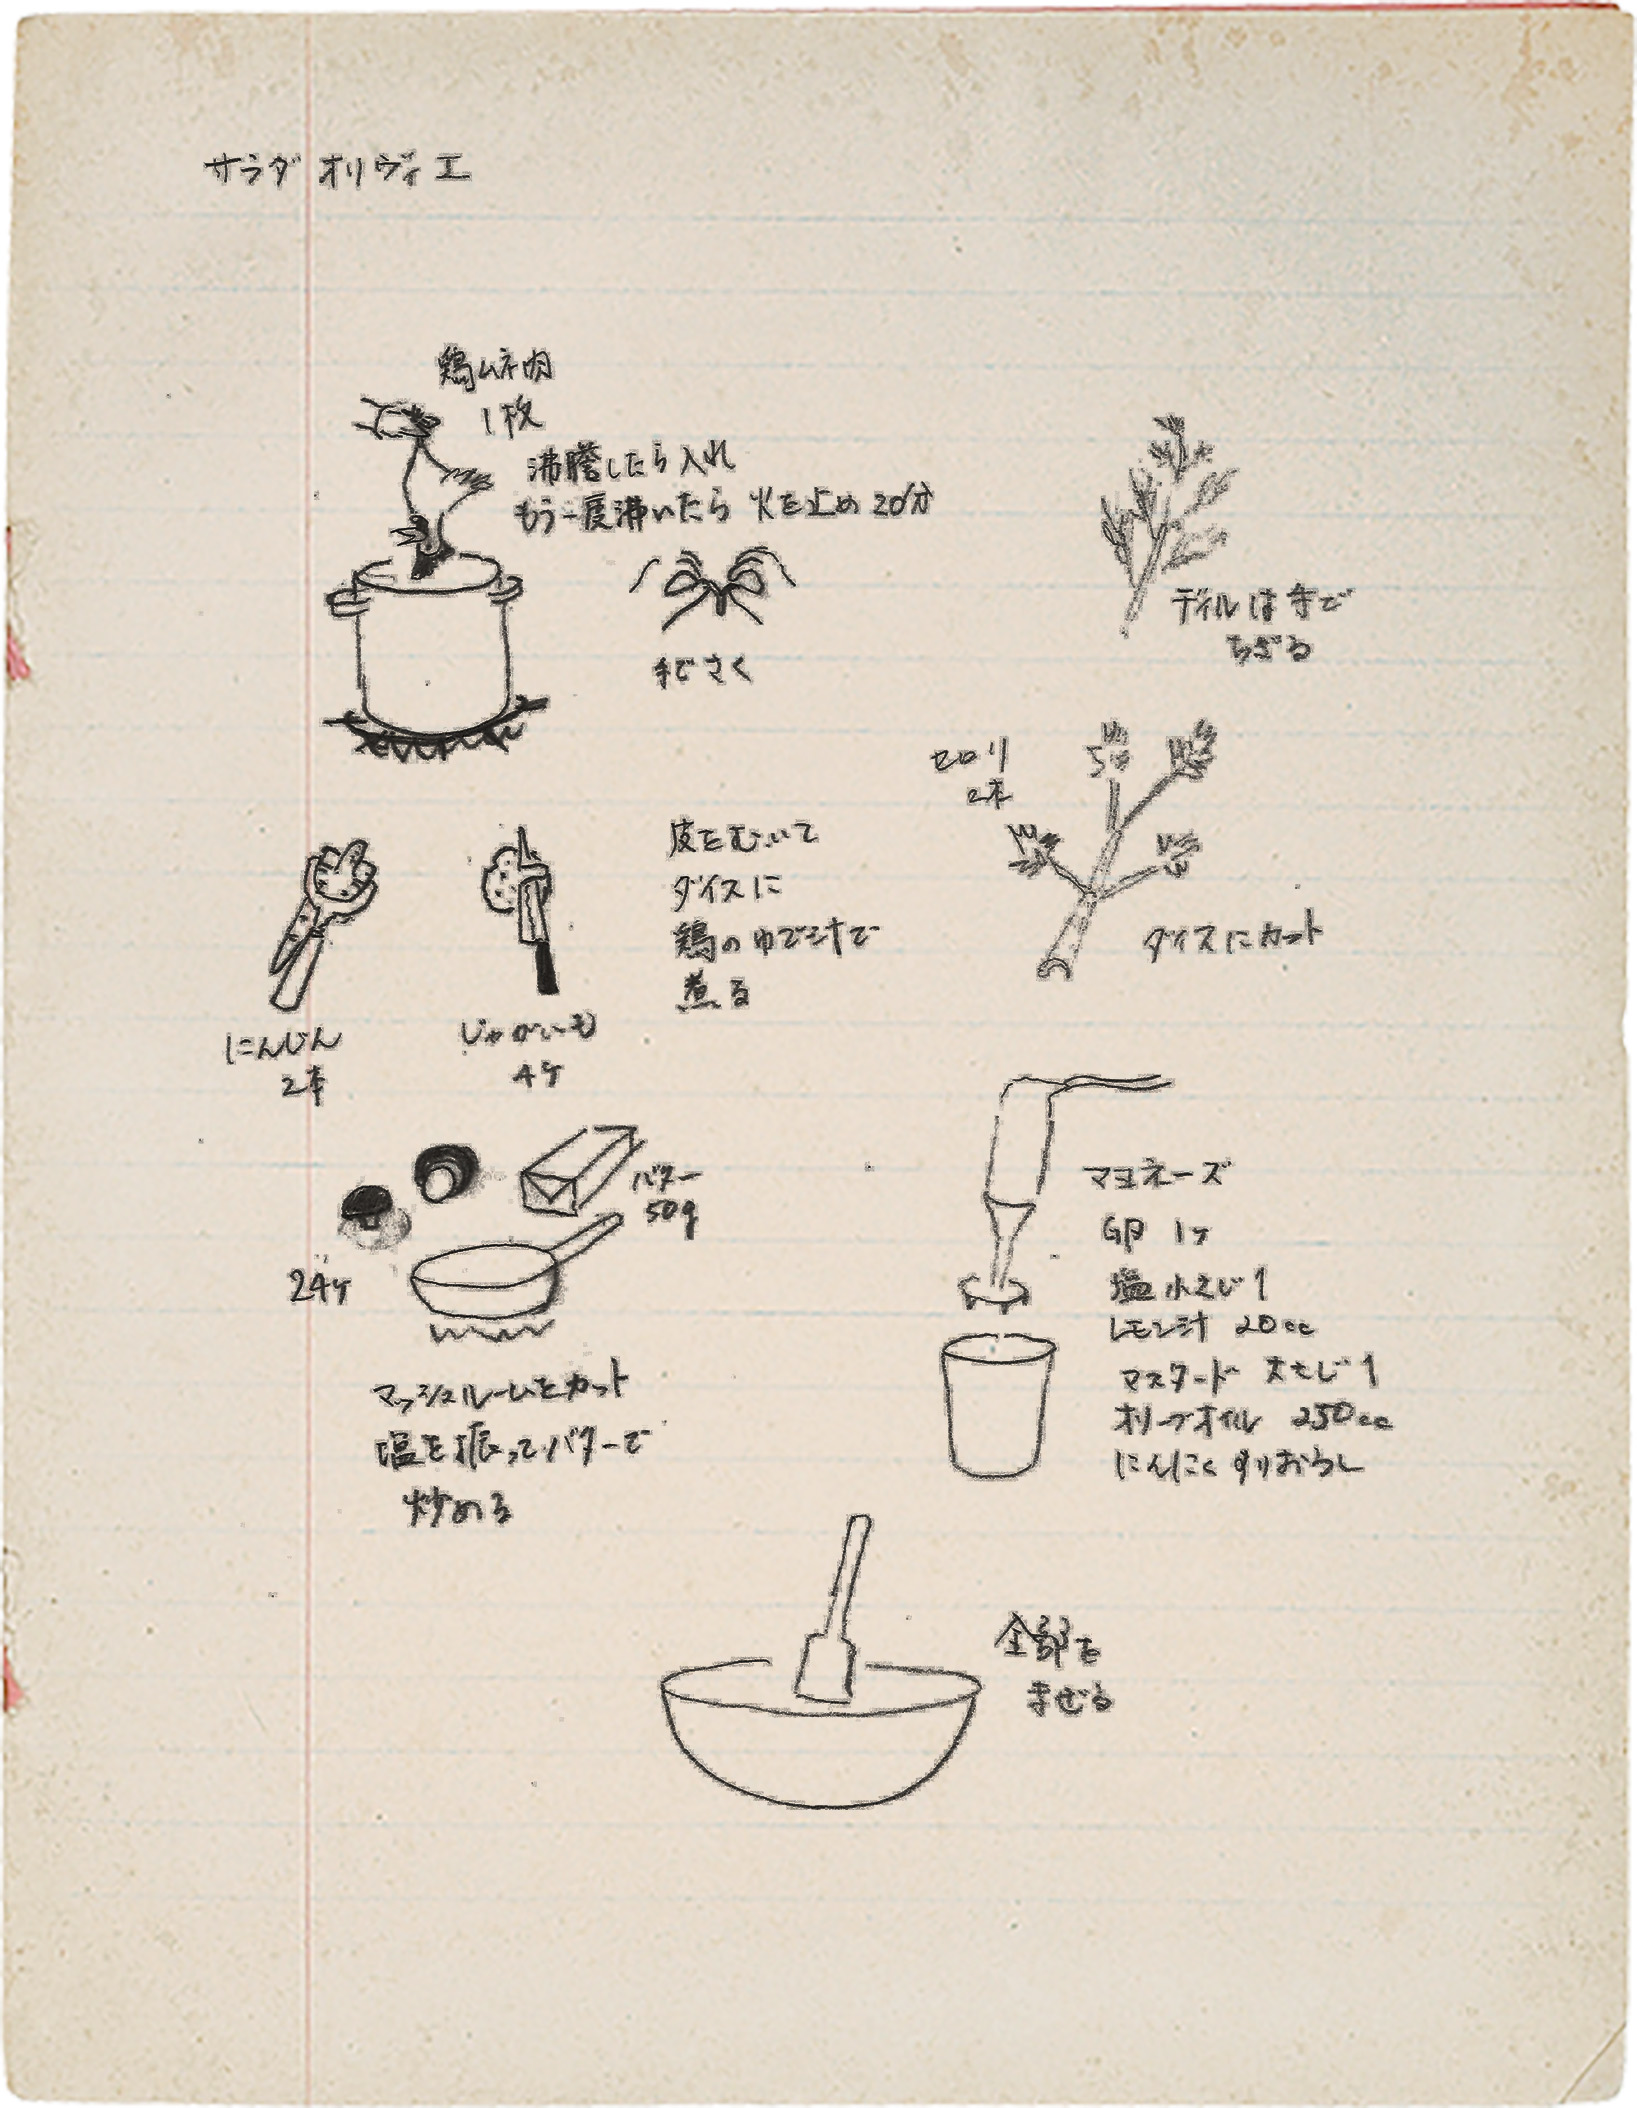 サラダ オリヴィエ
鶏ムネ肉
1枚
沸騰したら入れ
もう一度沸いたら 火を止め 20分
手でさく
ディルは手で
ちぎる
セロリ
2本
ダイスにカット
皮をむいて
ダイスに
鶏のゆで汁で
煮る
にんじん
2本
じゃがいも
4ケ
バター
50g
24ケ
マッシュルームをカット
塩を振ってバターで
炒める
マヨネーズ
卵 1ケ
塩 小さじ1
レモン汁 20cc
マスタード 大さじ1
オリーブオイル 250cc
にんにく すりおろし
全部を
まぜる